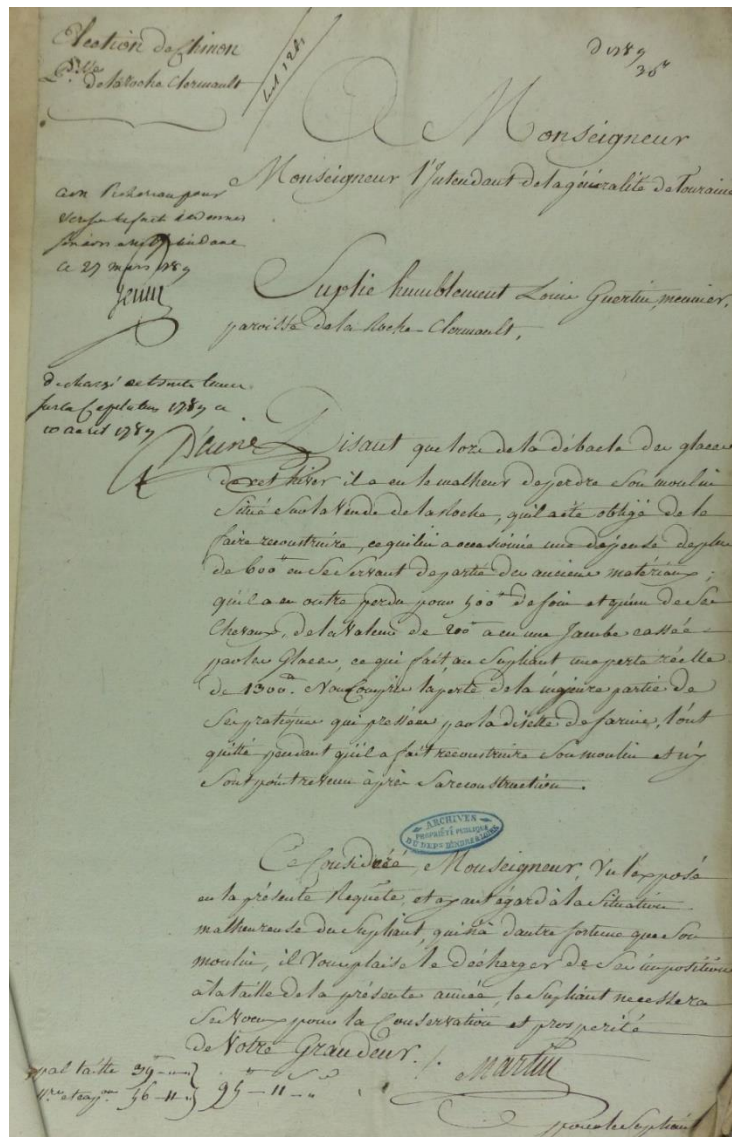 Election de Chinon
P.sse de la Roche Clermault
D 1789
A Monseigneur
Monseigneur l'Intendant de la généralité de Touraine
pour
verifier les faits et donner
ce 27 mars 1789
Suplie humblement Louis Guertin, meunier,
paroisse de la Roche-Clermault,
dechargé de toute
sur la Capitation 1789 ce
10 avril 1789
Disant que lors de la débacle des glaces
de cet hiver il a eu le malheur de perdre son moulin
situé sur la Vende de la Roche, qu'il a été obligé de le
faire reconstruire, ce qui lui a occasionné une dépense de plus
de 600tt en se servant de partie des anciens matériaux;
qu'il a en outre perdu pour 500tt de foin et qu'un de ses
Chevaux, de la valeur de 200tt a eu une Jambe cassée
par les Glaces, ce qui fait, au Supliant une perte réelle
de 1300tt. Non Compris la perte de la majeure partie de
ses pratiques qui pressées par la disette de farine, l'ont
quitté pendant qu'il a fait reconstruire son moulin et n'y
sont point revenu après sa reconstruction.
ARCHIVES
PROPRIÉTÉ PUBLIQUE
DU DEPT D'INDRE & LOIRE
Ce Considéré, Monseigneur, Vu l'exposé
en la présente Requête, et ayant égard à la situation
malheureuse du Supliant, qui n'a d'autre fortune que son
moulin, il Vous plaise le décharger de ses impositions
à la taille de la présente année, le Supliant ne cessera
ses Voeux pour la Conservation et prosperité
de Votre Grandeur.
Martin
pal taille 39
56 - 11
95 - 11
pour le Supliant